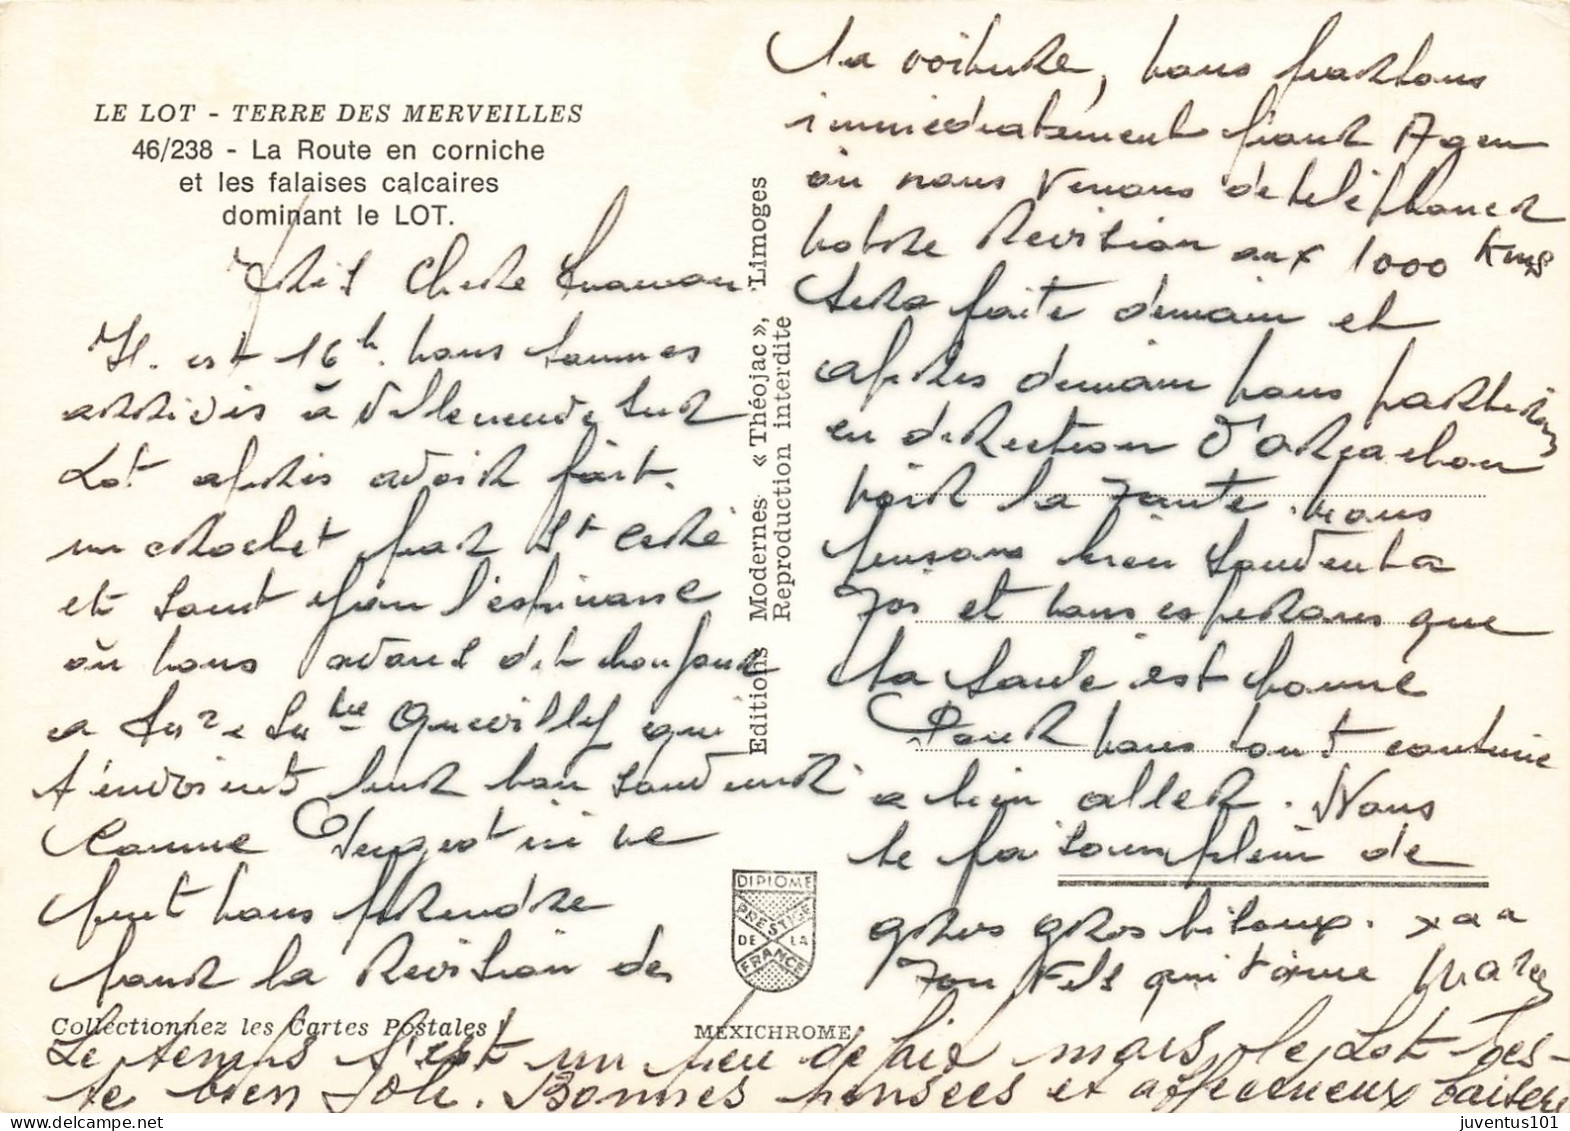 LE LOT - TERRE DES MERVEILLES
46/238 - La Route en corniche
et les falaises calcaires
dominant le LOT.
Très Chère Maman
Il est 16h. nous sommes
arrivés à Villeneuve sur
Lot après avoir fait
un crochet par St Céré
et Saint Jean l'espinasse
où nous avons dit bonjour
a Mr e Mme Quevilly qui
t'envoient leur bon souvenir
Comme Peugeot ici ne
peut nous prendre
pour la Revision de
la voiture, nous partons
immediatement pour Agen
où nous venons de telephoner
notre Revision aux 1000 Kms
sera faite demain et
après demain nous partirons
en direction d'Arcachon
voir la Tante. nous
pensons bien souvent a
Toi et nous esperons que
la santé est bonne
Pour nous tout continue
a bien aller. Nous
te faisons plein de
gros gros bisoux. xaa
Ton Fils qui t'aime
Le temps s'est un peu defait mais le Lot res-
te bien joli. Bonnes pensées et affectueux baisers
Editions Modernes « Théojac », Limoges
Reproduction interdite
DIPLOME
PRESTIGE
DE LA
FRANCE
Collectionnez les Cartes Postales !
MEXICHROME
juventus101